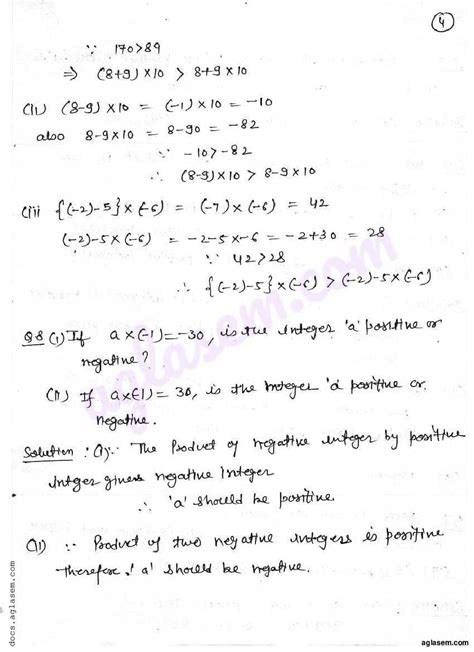 4
∵ 170>89
⇒ (8+9)×10 > 8+9×10
(ii) (8-9)×10 = (-1)×10 = -10
also 8-9×10 = 8-90 = -82
∵ -10>-82
∴ (8-9)×10 > 8-9×10
(iii {(-2)-5}×(-6) = (-7)×(-6) = 42
(-2)-5×(-6) = -2-5×-6 = -2+30 = 28
∵ 42>28
∴ {(-2)-5}×(-6) > (-2)-5×(-6)
Q8 (i) If a×(-1)=-30, is the integer 'a' positive or
negative?
(ii) If a×(-1)= 30, is the integer 'a' positive or
negative.
Solution : (i) ∵ The Product of negative integer by positive
integer gives negative integer
∴ 'a' should be positive.
(ii) ∵ Product of two negative integers is positive
therefore 'a' should be negative.
aglasem.com
docs.aglasem.com
aglasem.com